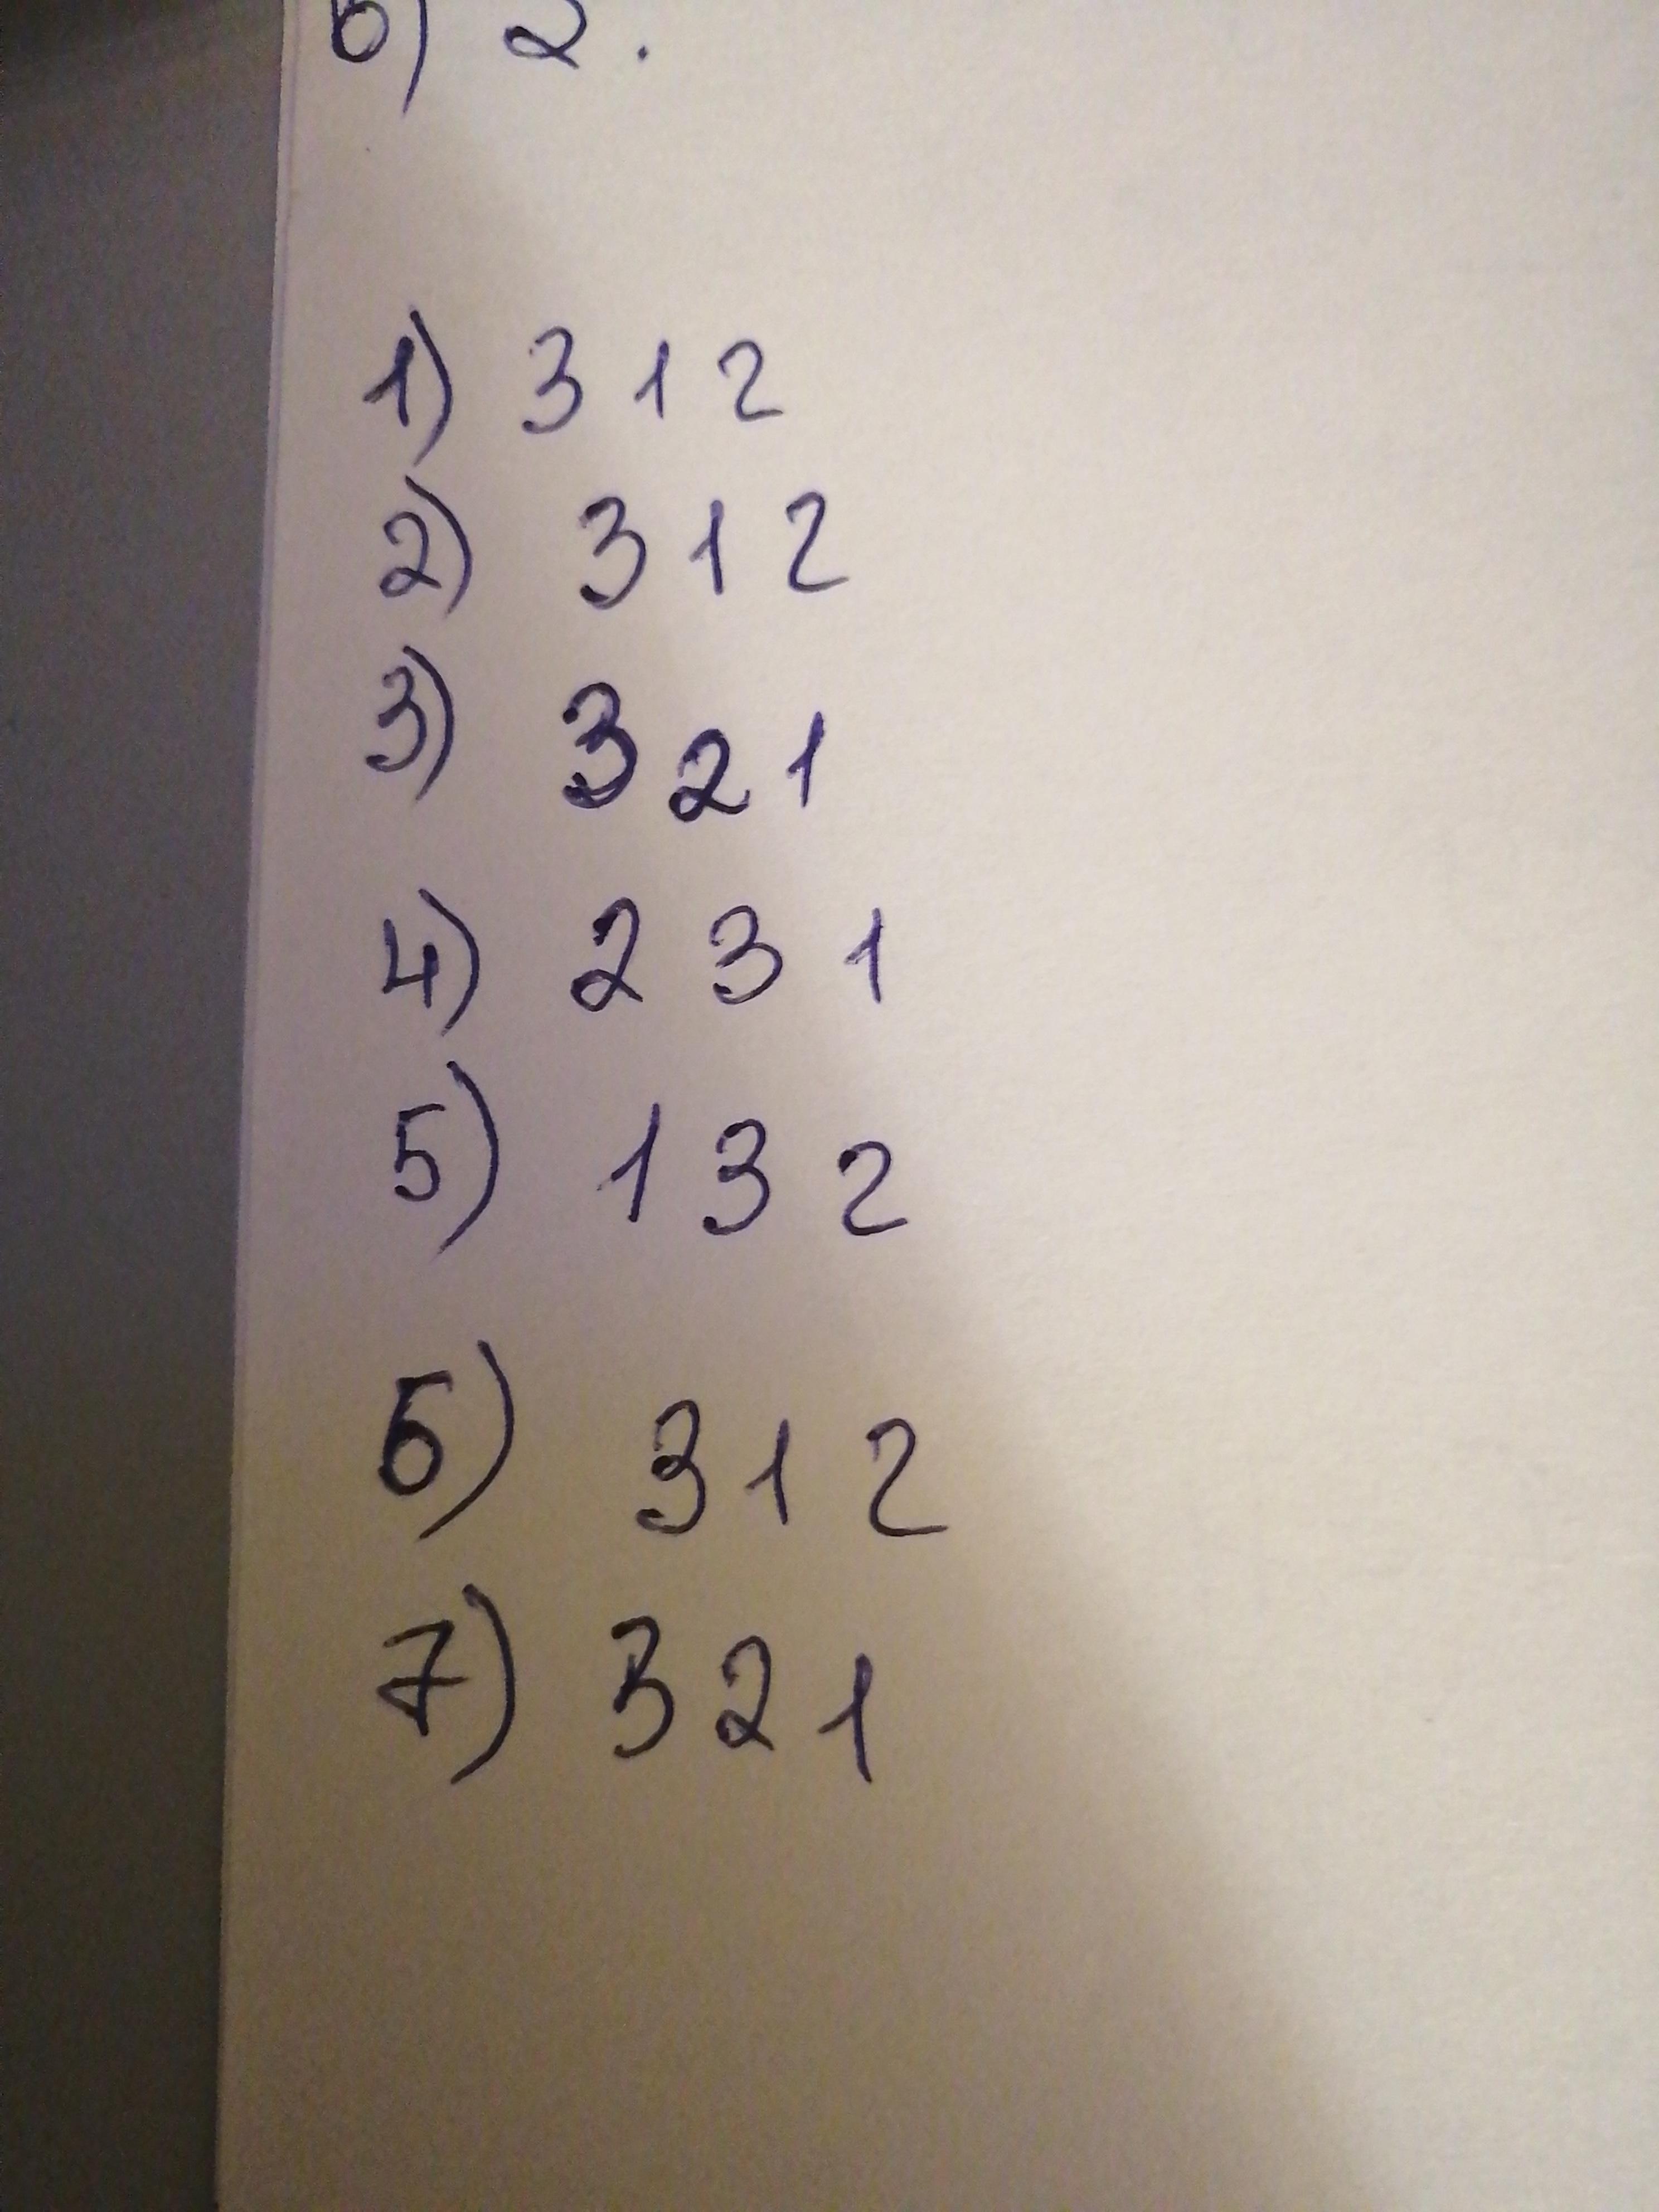 6) 2.
1) 3 1 2
2) 3 1 2
3) 3 2 1
4) 2 3 1
5) 1 3 2
6) 3 1 2
7) 3 2 1